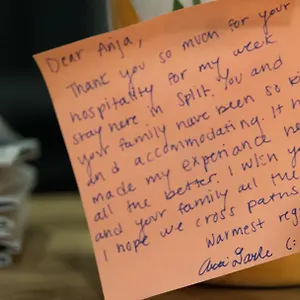 Dear Anja,
Thank you so much for your
hospitality for my week
stay here in Split. You and
your family have been so
and accommodating. It
made my experience
all the better. I wish
and your family all the
I hope we cross paths
Warmest